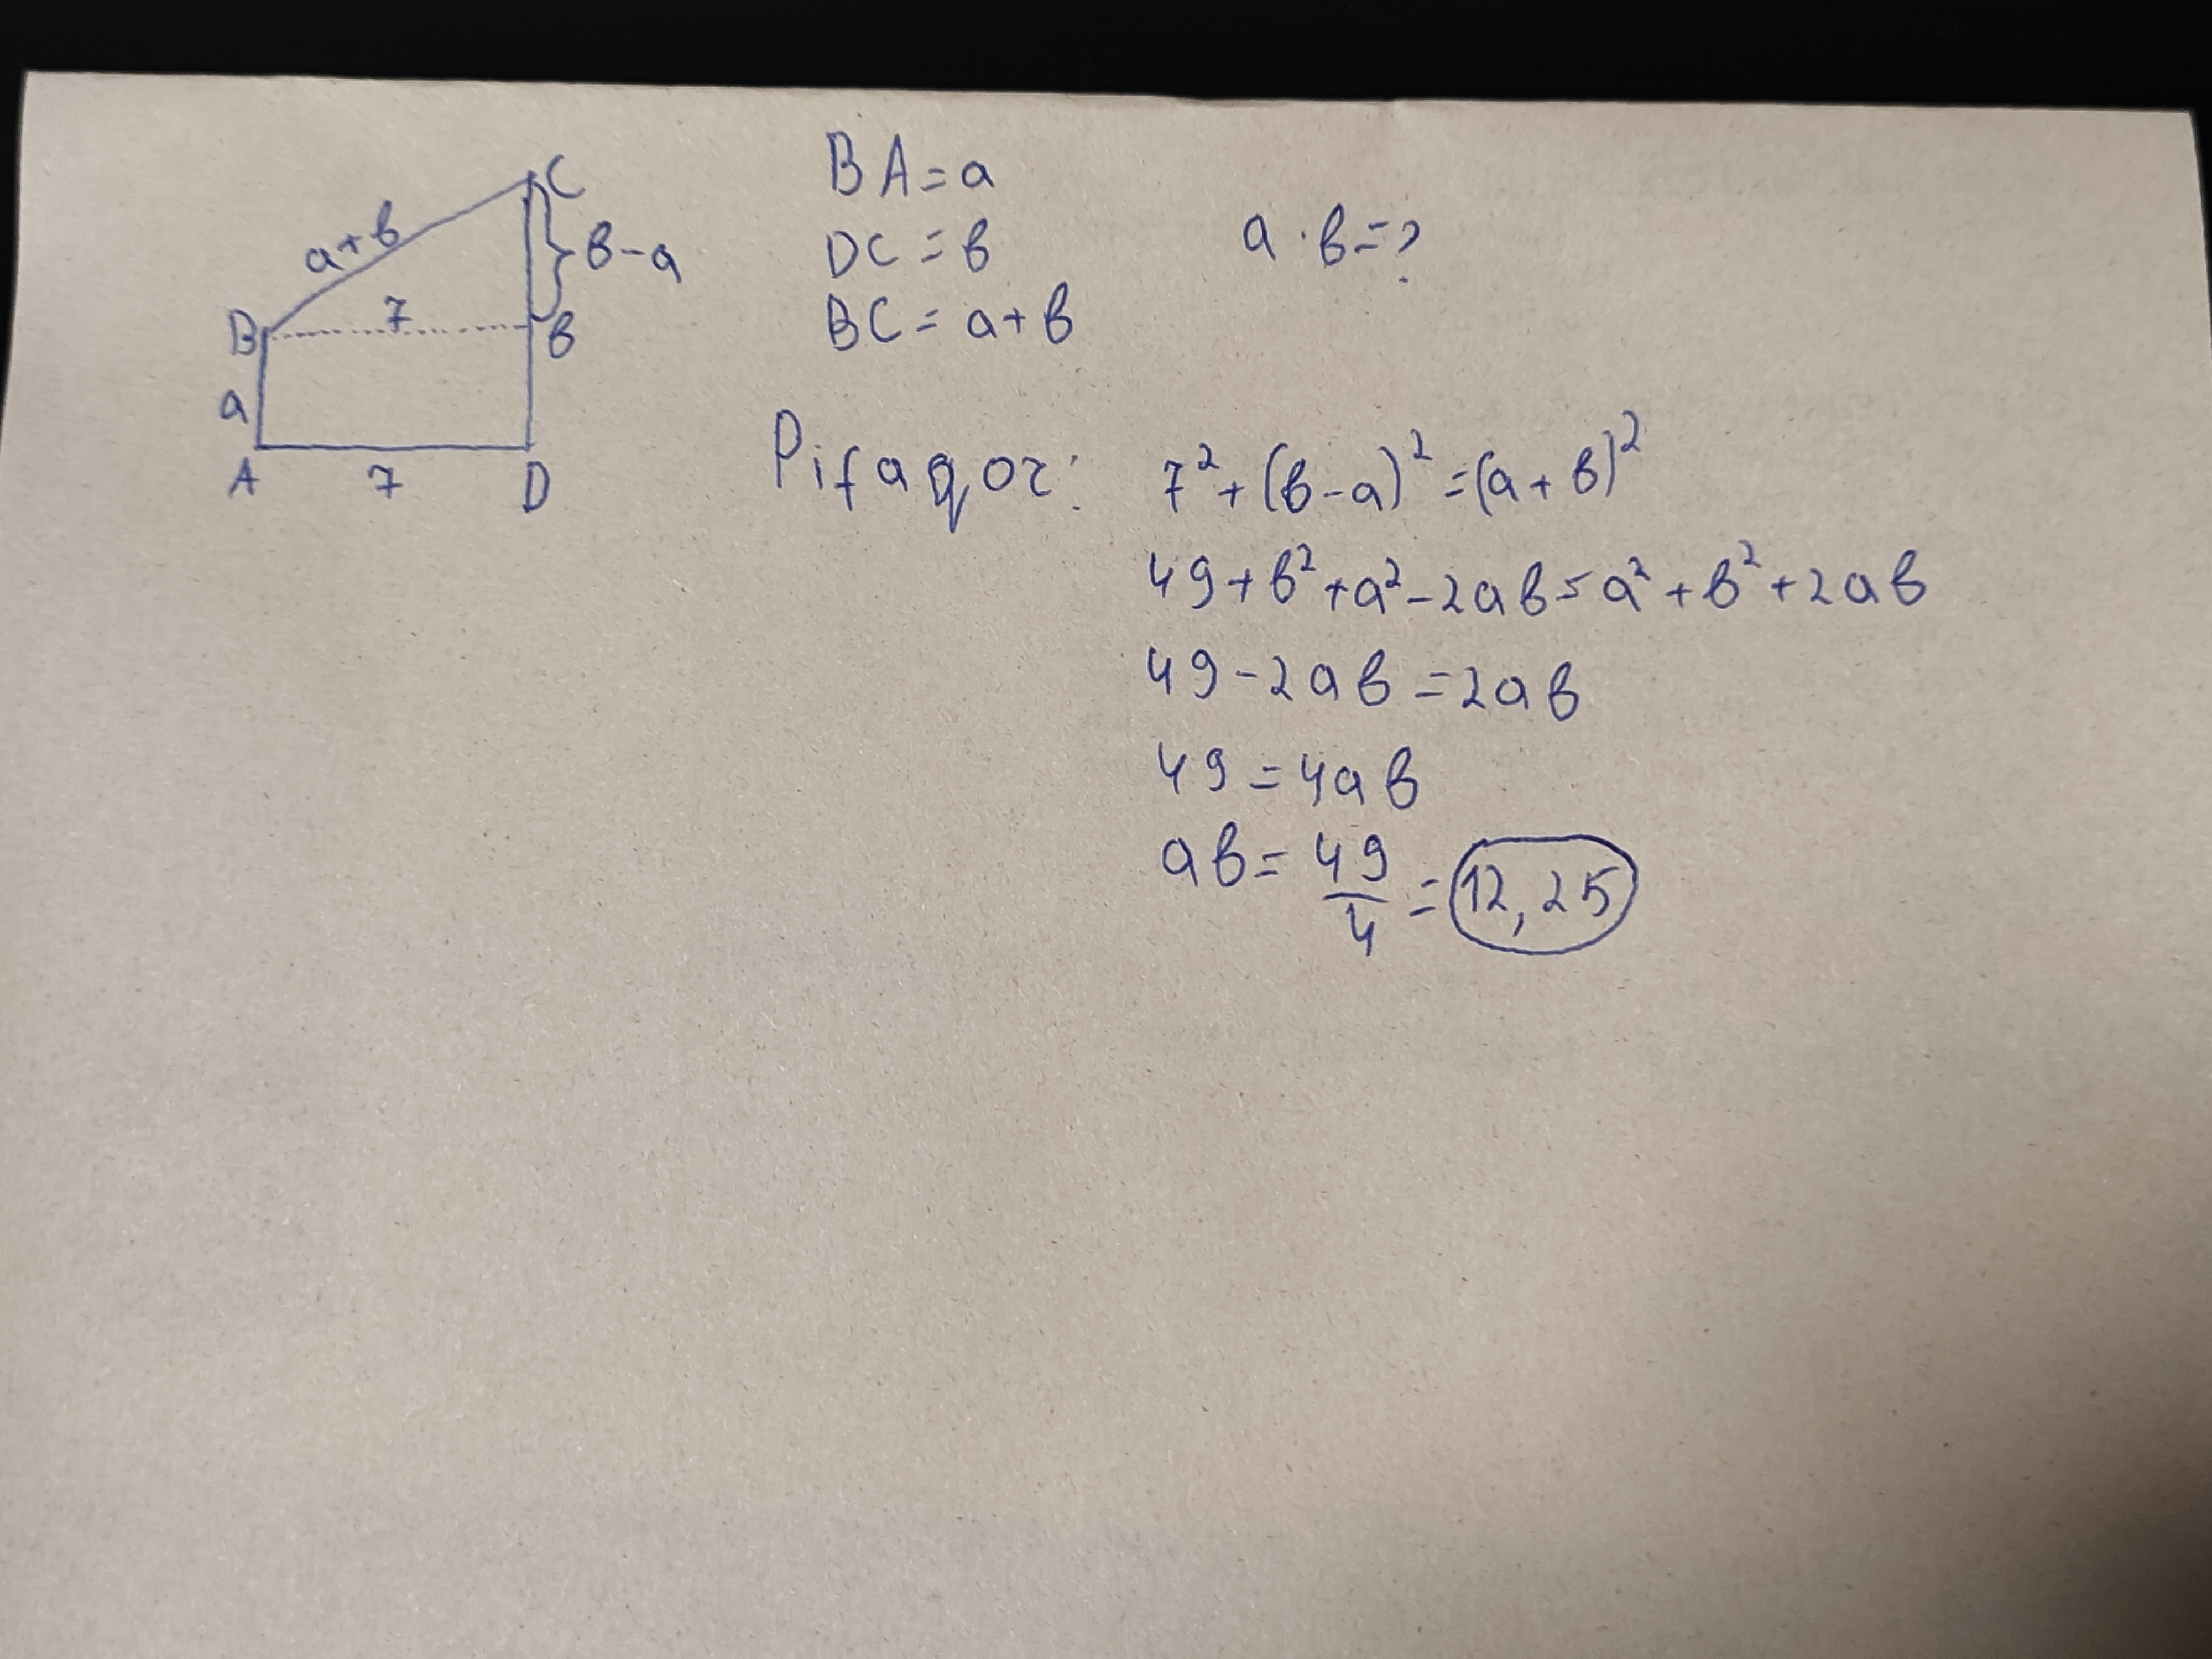 C
a+b
b-a
7
B
b
a
A
7
D
BA=a
DC=b
BC=a+b
a·b=?
Pifagor: 7²+(b-a)²=(a+b)²
49+b²+a²-2ab=a²+b²+2ab
49-2ab=2ab
49=4ab
ab=49/4=12,25